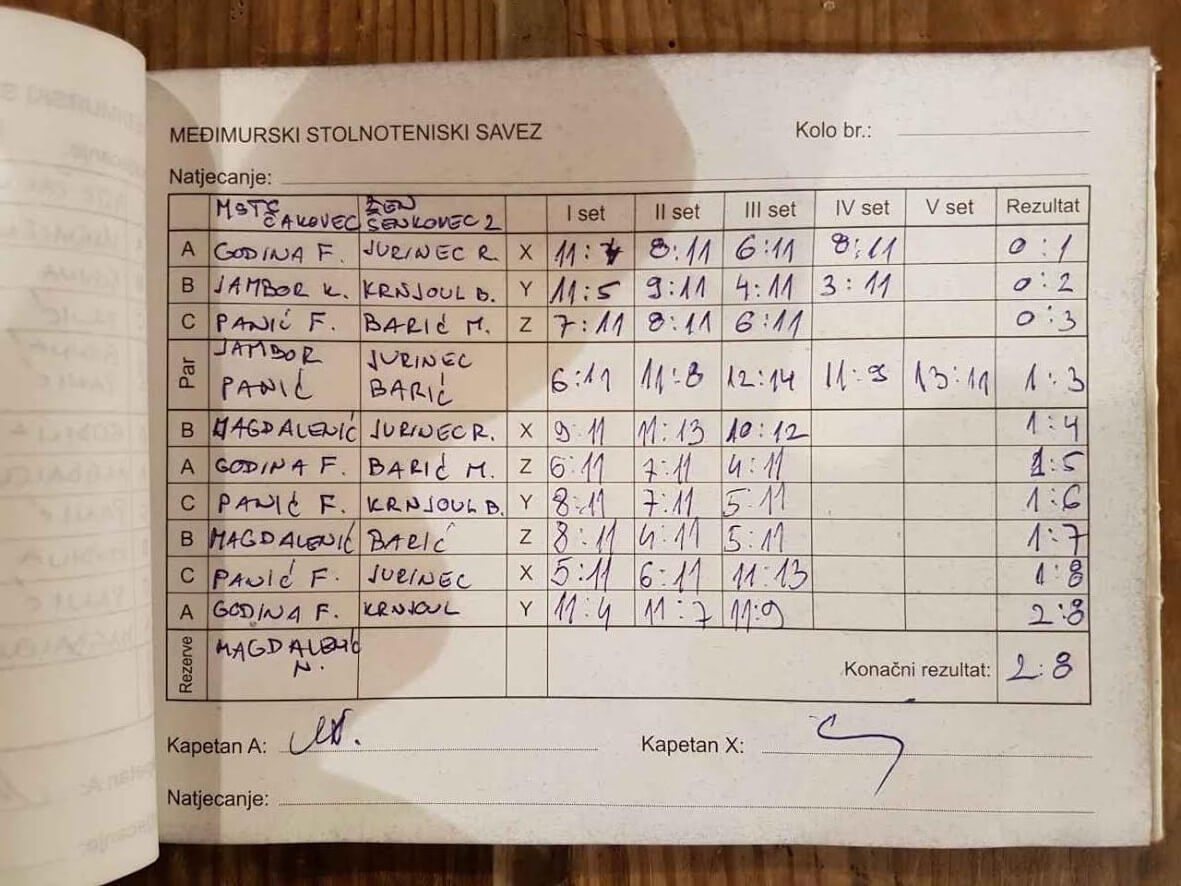 MEĐIMURSKI STOLNOTENISKI SAVEZ Kolo br.:
Natjecanje:
MSTS ČAKOVEC ŽEN ŠENKOVEC 2 I set II set III set IV set V set Rezultat
A GODINA F. JURINEC R. X 11:7 8:11 6:11 8:11 0:1
B JAMBOR K. KRNJOUL B. Y 11:5 9:11 4:11 3:11 0:2
C PANIĆ F. BARIĆ M. Z 7:11 8:11 6:11 0:3
Par JAMBOR PANIĆ JURINEC BARIĆ 6:11 11:8 12:14 11:9 13:11 1:3
B MAGDALENIĆ JURINEC R. X 9:11 11:13 10:12 1:4
A GODINA F. BARIĆ M. Z 6:11 7:11 4:11 1:5
C PANIĆ F. KRNJOUL B. Y 8:11 7:11 5:11 1:6
B MAGDALENIĆ BARIĆ Z 8:11 4:11 5:11 1:7
C PANIĆ F. JURINEC X 5:11 6:11 11:13 1:8
A GODINA F. KRNJOUL Y 11:4 11:7 11:9 2:8
Rezerve MAGDALENIĆ N. Konačni rezultat: 2:8
Kapetan A: Kapetan X:
Natjecanje: